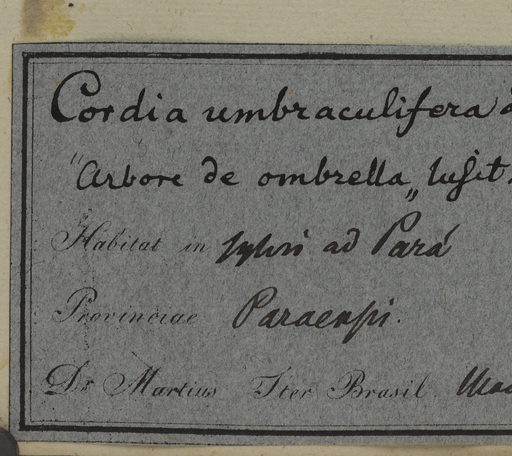 Cordia umbraculifera
"Arbore de ombrella„ lusit.
Habitat in sylvis ad Pará
Provinciae Paraensi.
Dr Martius Iter Brasil.